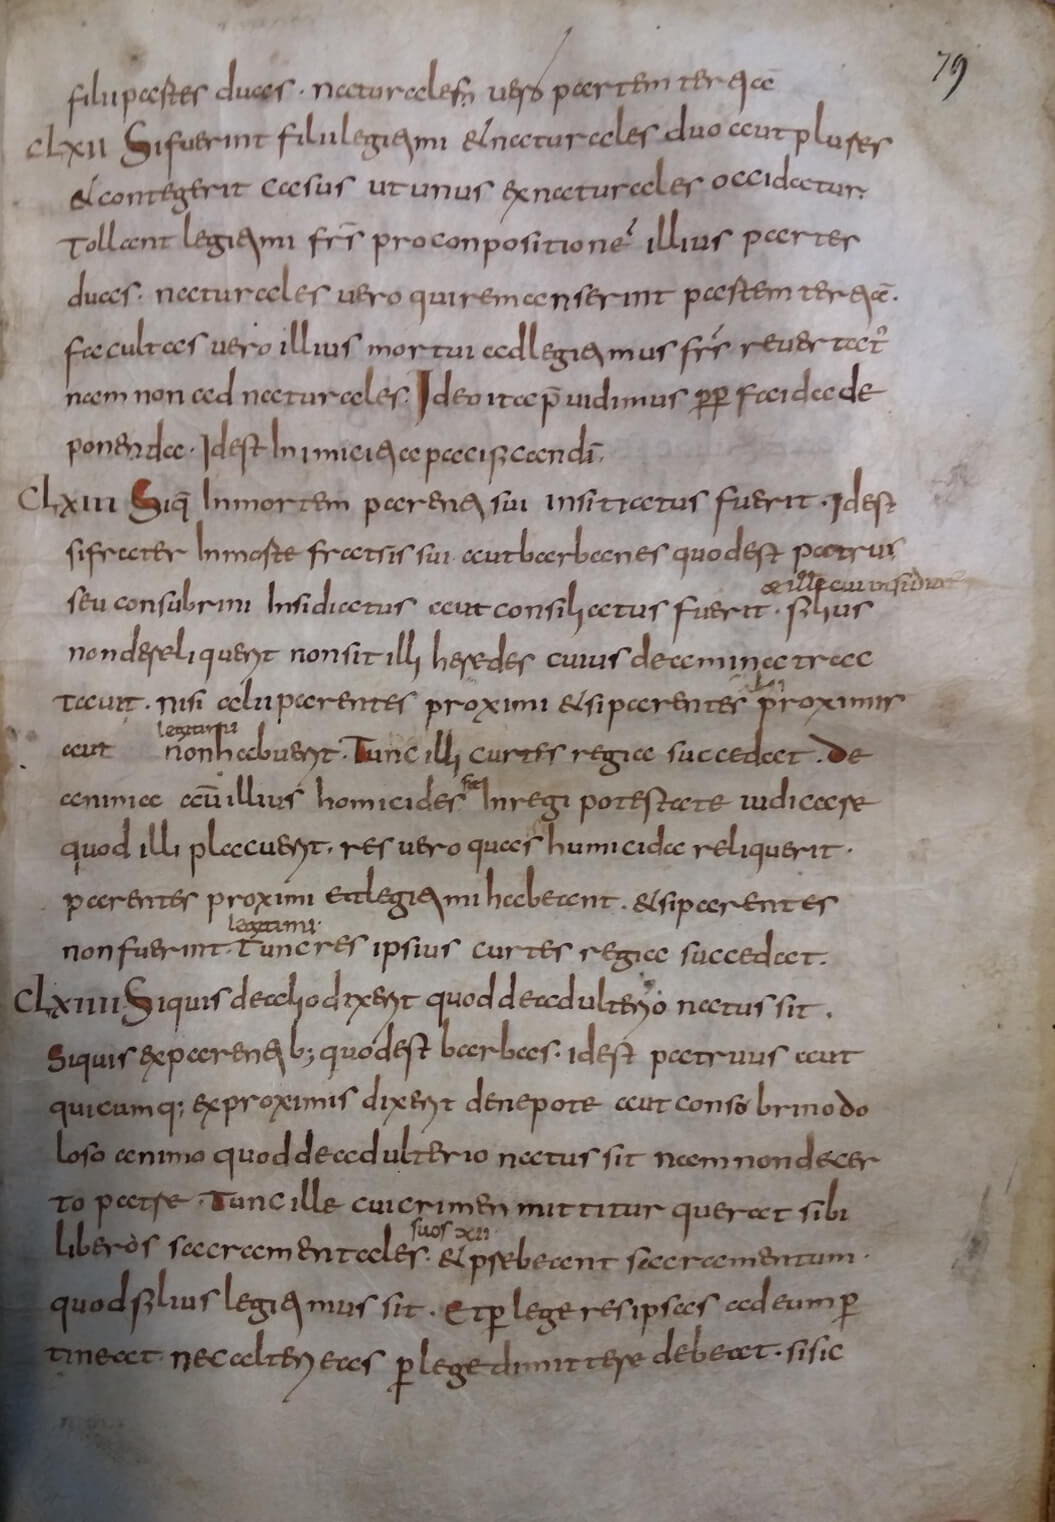 79
filii partes duas. naturales uero partem tertiā
CLXII Si fuerint filii legitimi & naturales duo aut plures
& contegerit casus ut unus ex naturales occidatur.
Tollant legitimi frs̄ pro conpositione illius partes
duas. naturales uero qui remanserint partem tertiā.
facultas uero illius mortui ad legitimus frs̄ reuertat᷒
nam non ad naturales. Ideo ita p̄uidimus ꝓp faida de
ponenda. Idest Inimicitia pacisCandī.
CLXIII Siq̄ Inmortem parentis sui insitiatus fuerit. Idest
sifrater Inmorte fratris sui aut barbanes quodest patruis
& ille cui insidiat
seu consubrini Insidiatus aut consiliatus fuerit. filius
non dereliquerit non sit illi heredes cuius de anima trac
tauit. nisi alii parentes proximi & si parentes proximis
legitimi
aut non habuerit. Tunc illi curtes regia succedat. De
anima aū illius homicides sit Inregi potestate iudicare
quod illi placuerit. res uero quas humicida reliquerit.
parentes proximi et legitimi habeant. & si parentes
legitimi.
non fuerint. Tunc res ipsius curtes regia succedat.
CLXIIII Siquis dealio dixerit quod de adulterio natus sit.
Siquis exparentib; quodest barbas. idest patruus aut
quicumq; exproximis dixerit denepote aut consobrino do
loso animo quod de adulterio natus sit nam non decer
to patre. Tunc ille cui crimen mittitur querat sibi
suos xii.
liberos sacramentales. & prebeant sacramentum.
quod filius legitimus sit. Et ꝑ lege res ipsas ad eum ꝑ
tineat. nec alteri eas ꝑ lege dimittere debeat. si sic